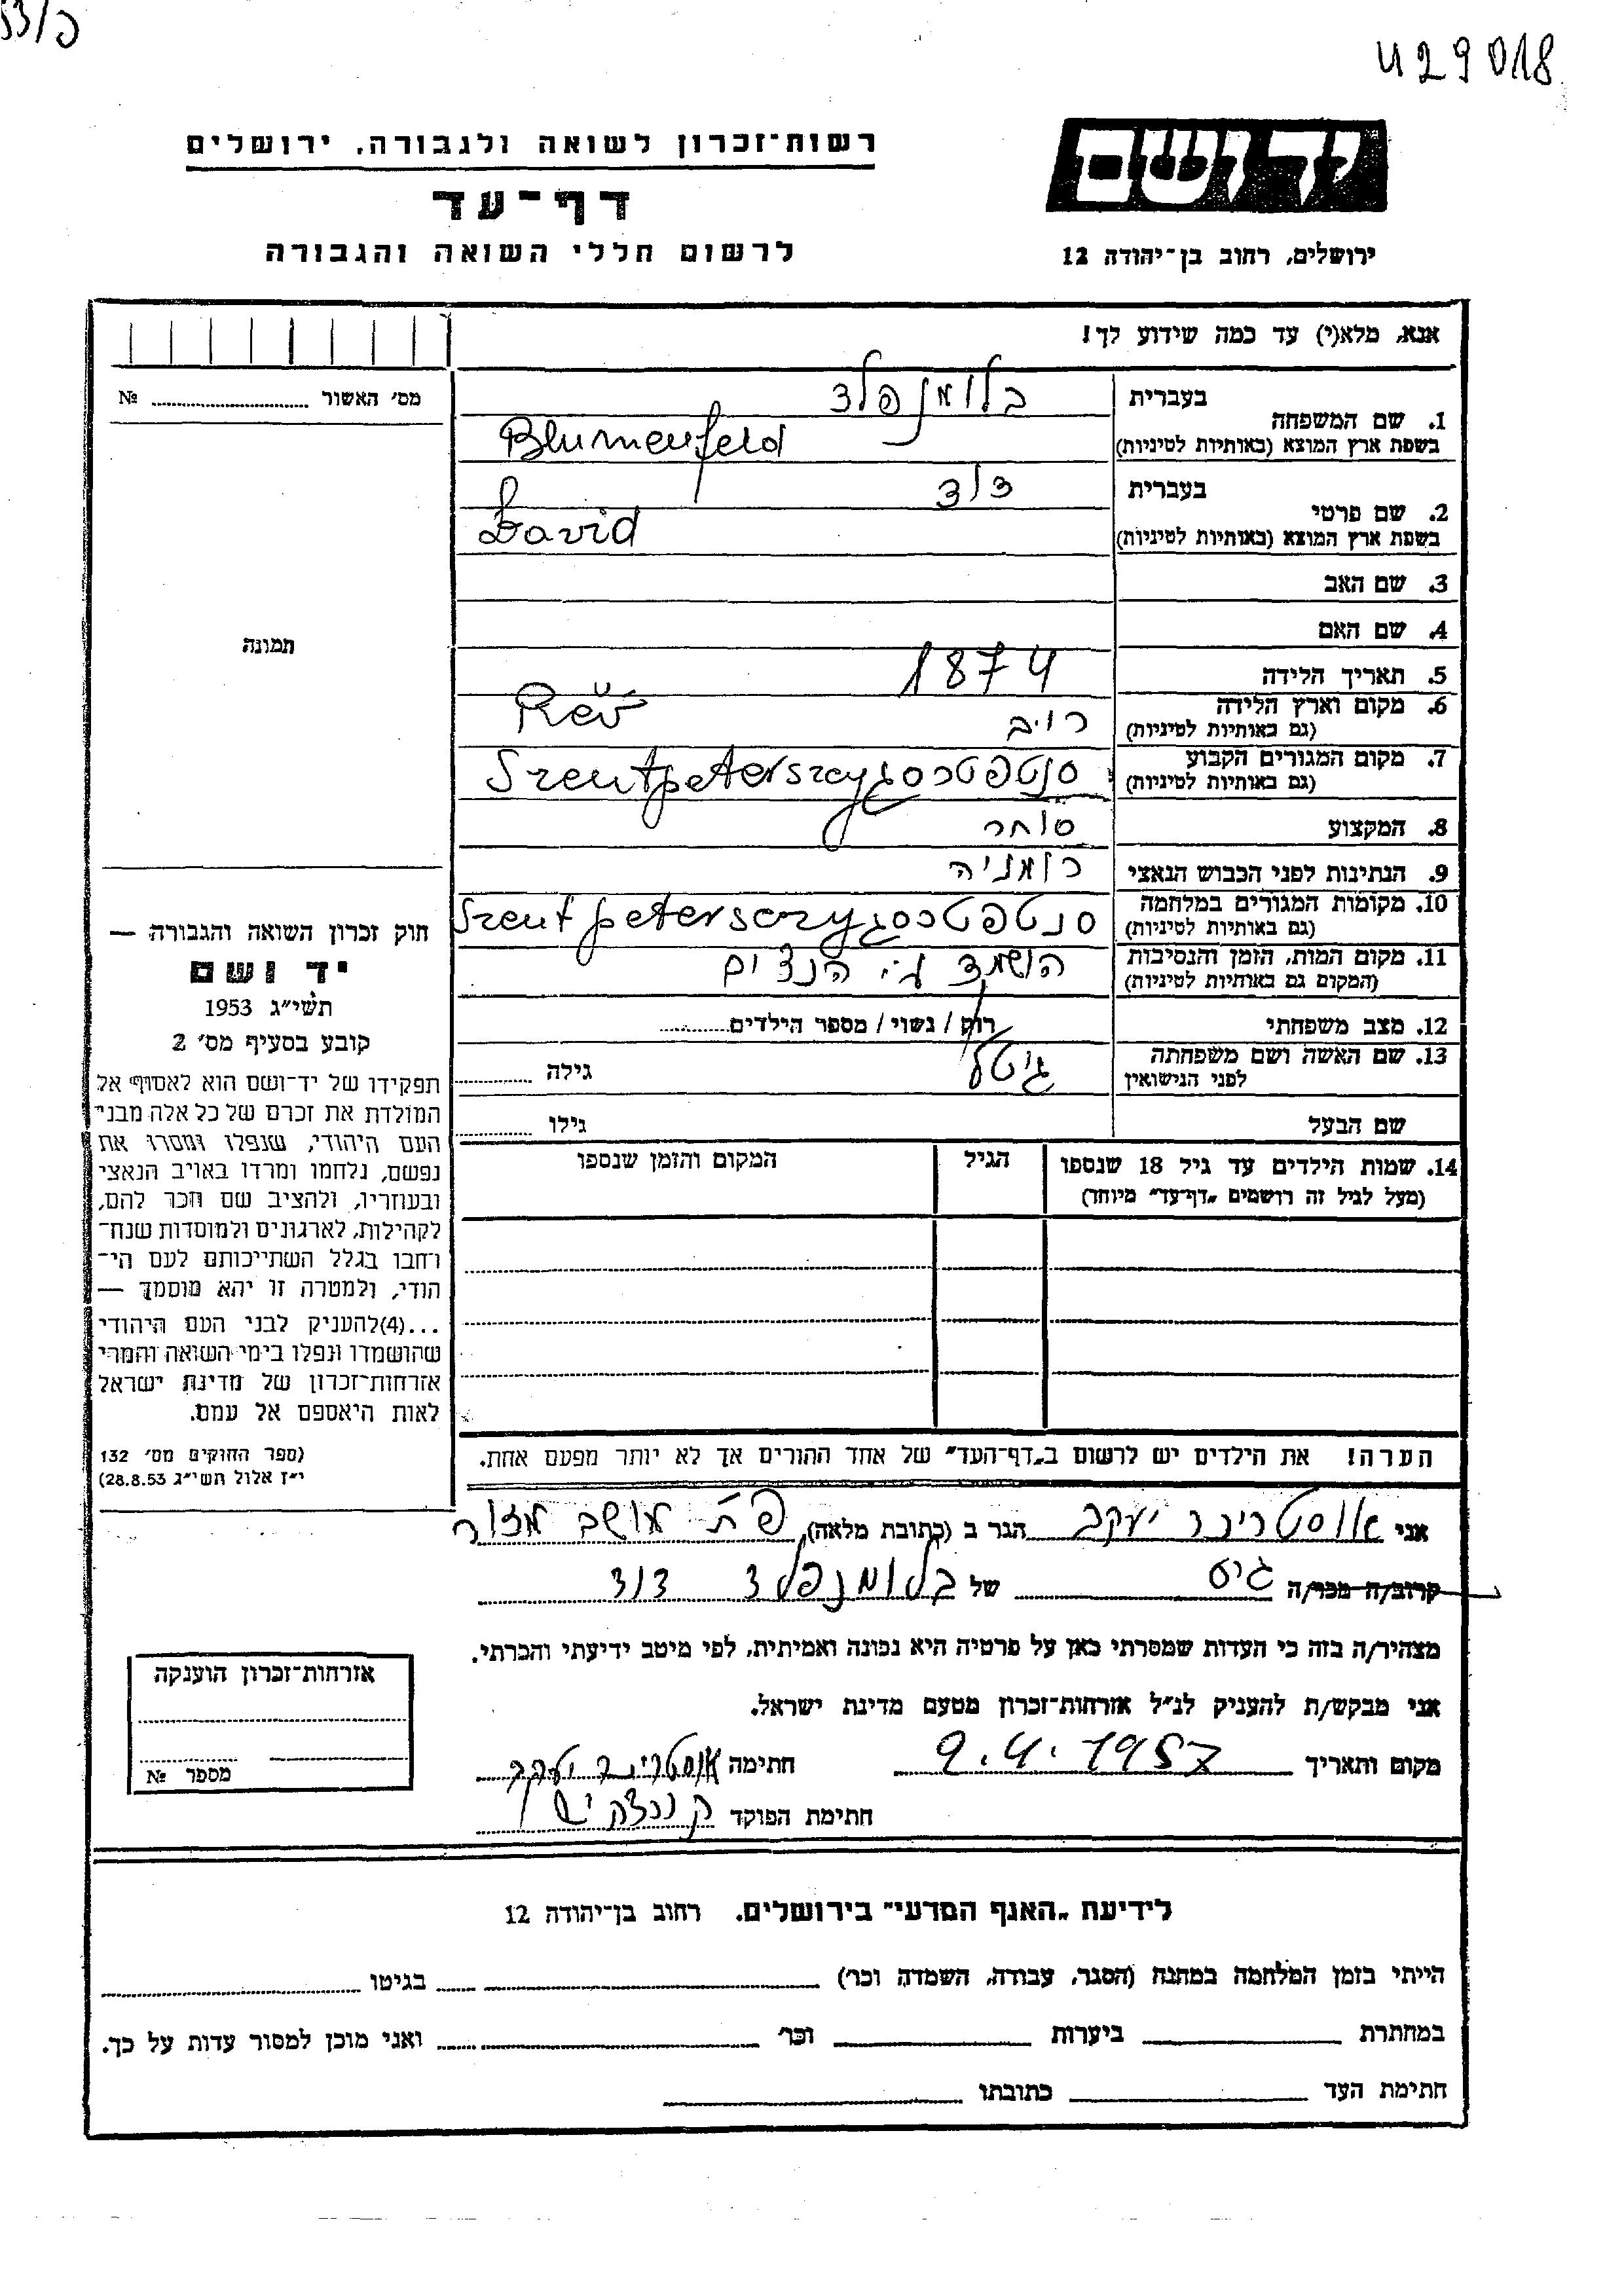 429018
רשות־זכרון לשואה ולגבורה, ירושלים
דף־עד
לרשום חללי השואה והגבורה
יד ושם
ירושלים, רחוב בן־יהודה 12
אנא, מלא(י) עד כמה שידוע לך!
מס׳ האשור № 
1. שם המשפחה
בעברית בלומנפלד
בשפת ארץ המוצא (באותיות לטיניות) Blumenfeld
2. שם פרטי
בעברית דוד
בשפת ארץ המוצא (באותיות לטיניות) David
3. שם האב
4. שם האם
5. תאריך הלידה 1874
6. מקום וארץ הלידה רויב
(גם באותיות לטיניות) Rev
7. מקום המגורים הקבוע
(גם באותיות לטיניות) Szentpeterszeg
8. המקצוע סוחר
9. הנתינות לפני הכבוש הנאצי רומניה
10. מקומות המגורים במלחמה
(גם באותיות לטיניות)
11. מקום המות, הזמן והנסיבות הושמד ע״י הנצים
(המקום גם באותיות לטיניות)
12. מצב משפחתי רוק / נשוי / מספר הילדים
13. שם האשה ושם משפחתה גיטל גילה
לפני הנישואין
שם הבעל גילו
14. שמות הילדים עד גיל 18 שנספו הגיל המקום והזמן שנספו
(מעל לגיל זה רושמים „דף־עד״ מיוחד)
תמונה
חוק זכרון השואה והגבורה —
יד ושם
תשי״ג 1953
קובע בסעיף מס׳ 2
תפקידו של יד־ושם הוא לאסוף אל
המולדת את זכרם של כל אלה מבני
העם היהודי, שנפלו ומסרו את
נפשם, נלחמו ומרדו באויב הנאצי
ובעוזריו, ולהציב שם וזכר להם,
לקהילות, לארגונים ולמוסדות שנח־
רחבו בגלל השתייכותם לעם הי־
הודי, ולמטרה זו יהא מוסמך —
...(4)להעניק לבני העם היהודי
שהושמדו ונפלו בימי השואה והמרי
אזרחות־זכרון של מדינת ישראל
לאות היאספם אל עמם.
(ספר החוקים מס׳ 132
י״ז אלול תשי״ג 28.8.53)
הערה! את הילדים יש לרשום ב„דף־העד״ של אחד ההורים אך לא יותר מפעם אחת.
אני אוסטריכר יעקב הגר ב (כתובת מלאה) פ״ת מושב מזור
קרוב/ה מכר/ה גיס של בלומנפלד דוד
מצהיר/ה בזה כי העדות שמסרתי כאן על פרטיה היא נכונה ואמיתית, לפי מיטב ידיעתי והכרתי.
אני מבקש/ת להעניק לנ״ל אזרחות־זכרון מטעם מדינת ישראל.
מקום ותאריך 9.4.1957 חתימה אוסטריכר יעקב
חתימת הפוקד
אזרחות־זכרון הוענקה
מספר №
לידיעת „האגף המדעי״ בירושלים. רחוב בן־יהודה 12
הייתי בזמן המלחמה במחנה (הסגר, עבודה, השמדה וכר׳) בגיטו
במחתרת ביערות וכר׳ ואני מוכן למסור עדות על כך.
חתימת העד כתובתו